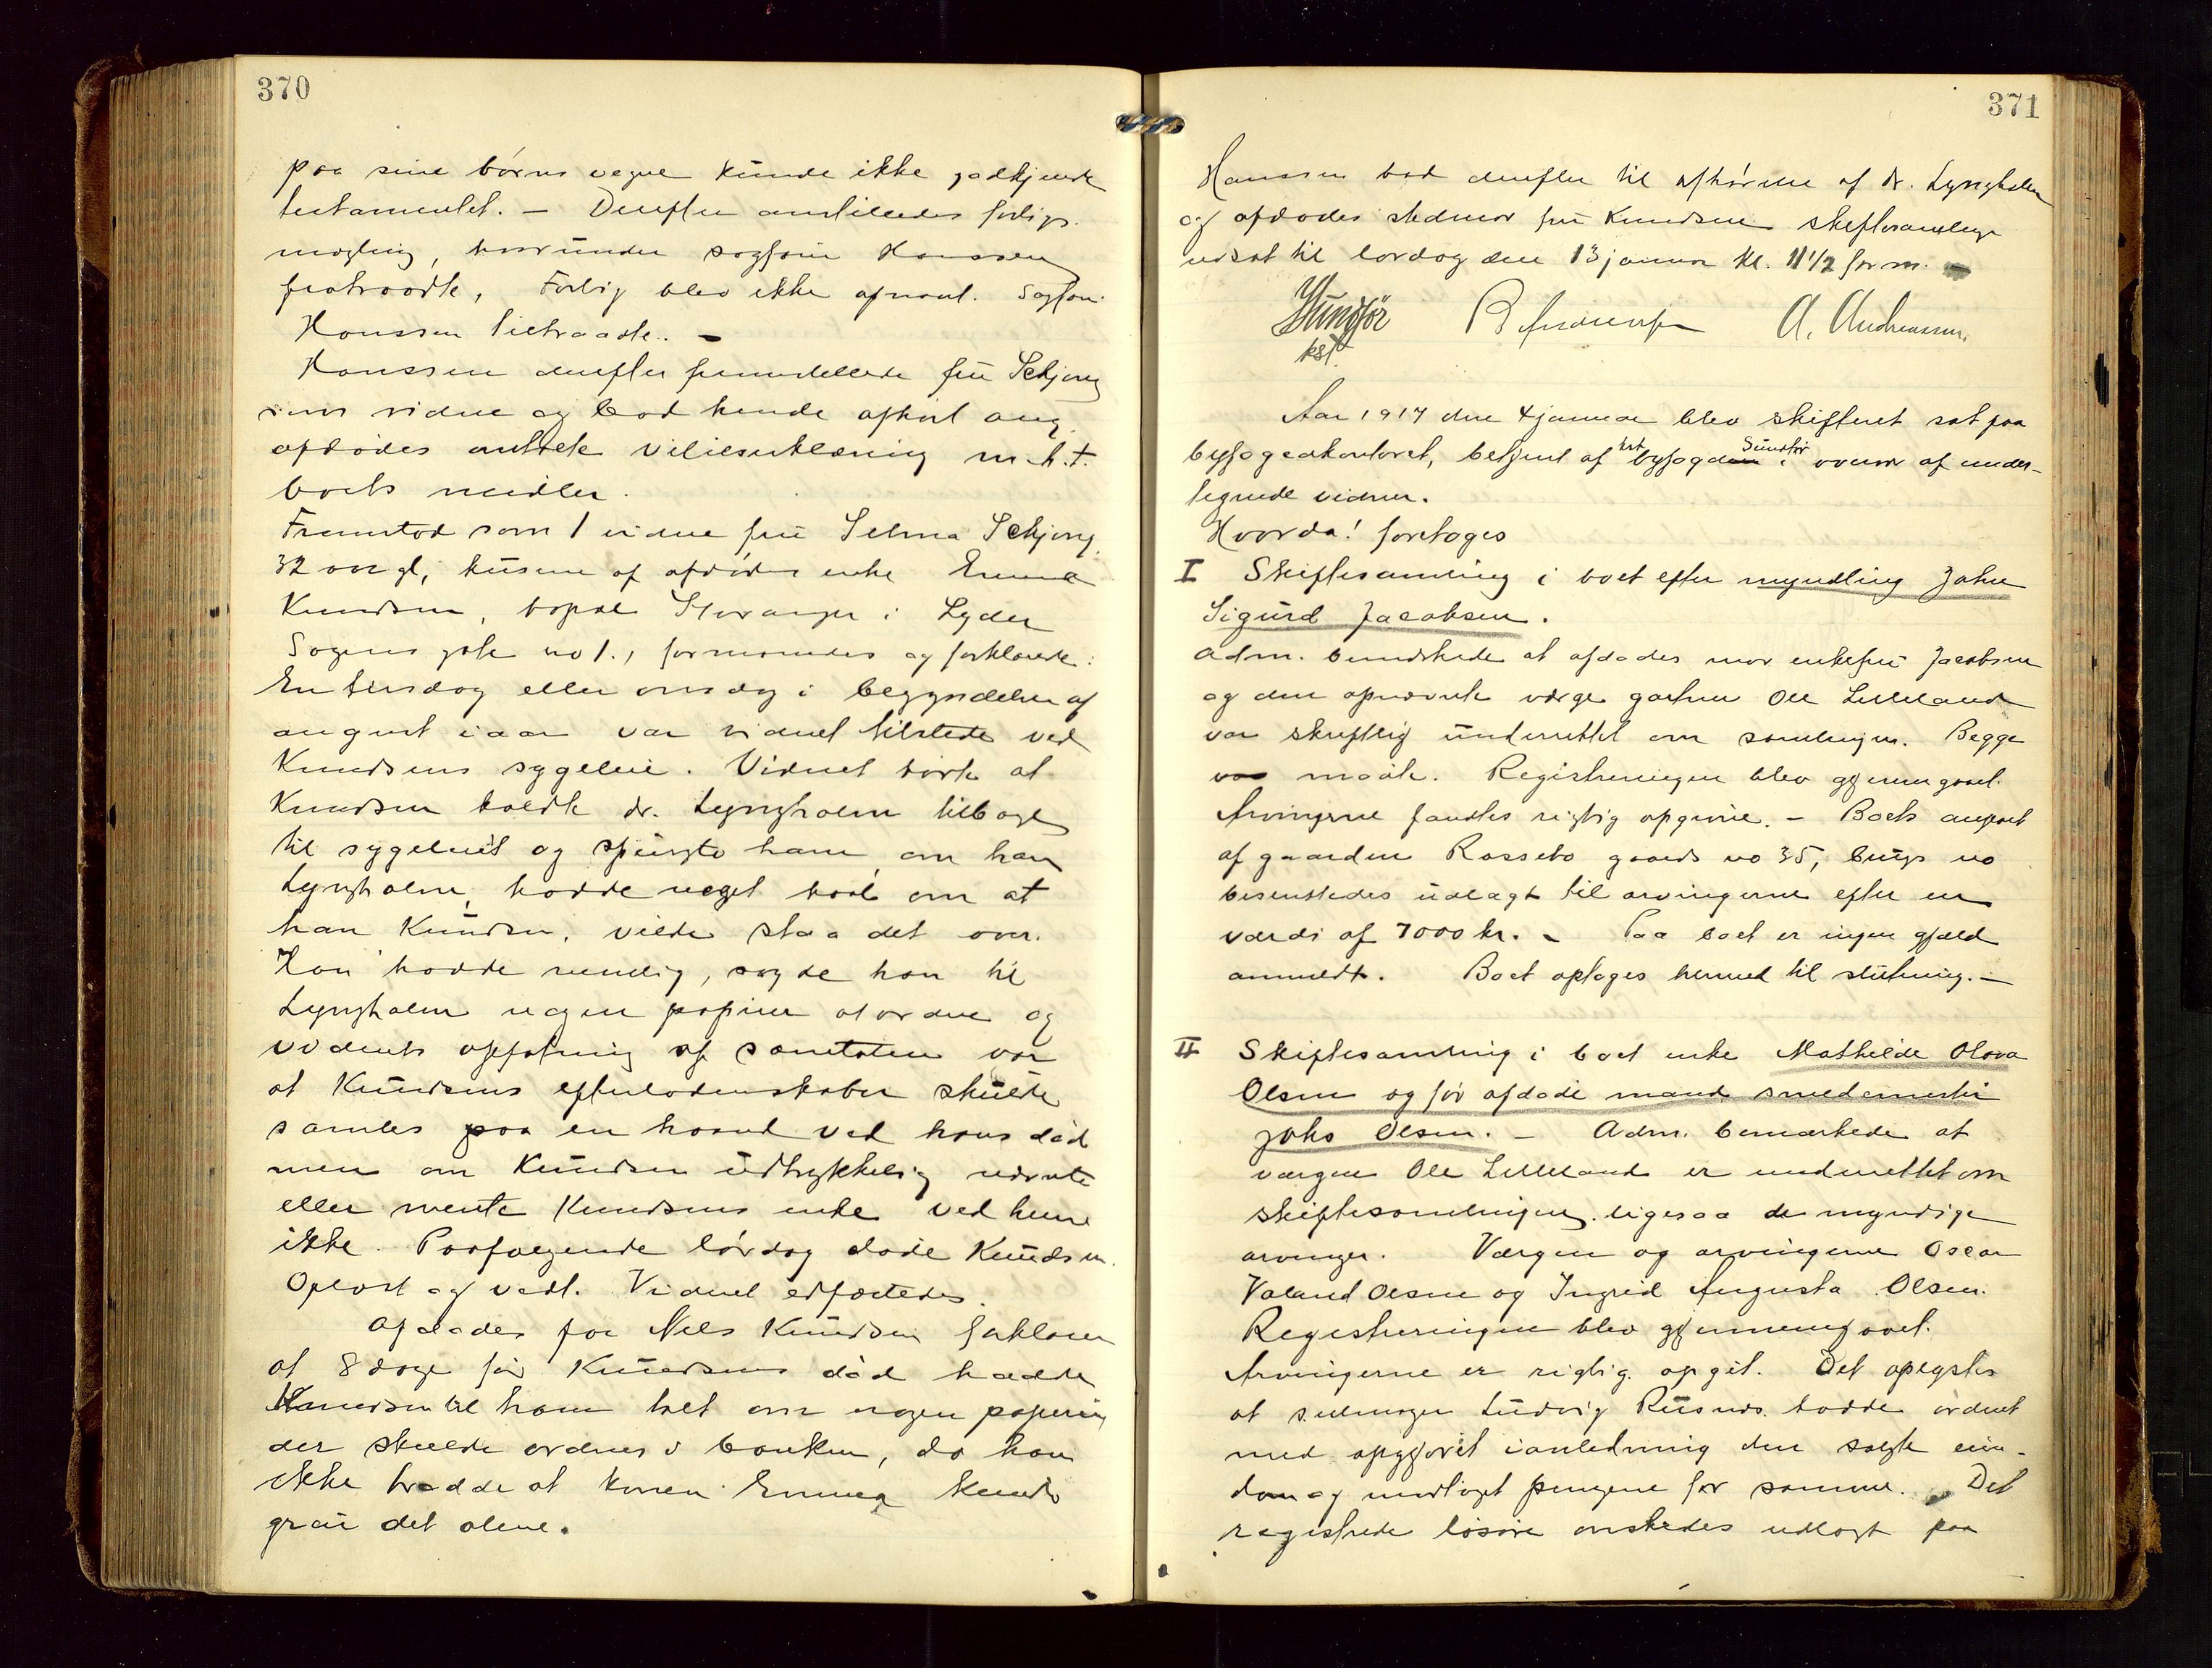 370
paa sine børns vegne kunde ikke godkjende
testamentet. – Derefter anstilledes forligs-
mægling, hvorunder sagfører Hanssen
fratraadte, Forlig blev ikke opnaaet. Sagfør.
Hanssen tiltraadte. –
Hanssen derefter fremstillede fru Schjong
som vidne og bad hende afhørt ang.
afdødes antatte viljeserklæring m.h.t.
boets midler.
Fremstod som 1 vidne fru Selma Schjong,
32 aar gl, kusine af afdødes enke Emma
Knudsen, bopæl Stavanger i Lyder
Sagens gate no 1., formanedes og forklarede:
En tirsdag eller onsdag i begyndelsen af
august iaar var vidnet tilstede ved
Knudsens sygeleie. Vidnet hørte at
Knudsen kaldte dr. Lyngholm tilbage
til sygeleiet og spurgte ham om han
Lyngholm, hadde noget haab om at
han Knudsen, vilde staa det over.
Han hadde nemlig, sagde han til
Lyngholm nogen papirer at ordne og
vidnets opfatning af samtalen var
at Knudsens efterladenskaber skulde
samles paa en haand ved hans død
men om Knudsen udtrykkelig nævnte
eller mente Knudsens enke ved hun
ikke. Paafølgende lørdag døde Knudsen.
Oplæst og vedt. Vidnet edfæstedes.
Afdødes far Nels Knudsen forklarer
at 8 dage før Knudsens død hadde
Knudsen til ham talt om nogen papirer
der skulde ordnes i banken, da han
ikke trodde at konen Emma kunde
greie det alene.
371
Hanssen bad derefter til afhørelse af dr. Lyngholm
og afdødes stedmor fru Knudsen skiftesamlingen
udsat til lørdag den 13 januar kl. 11 1/2 form. –
Sundfør A. Andreassen.
kst
Aar 1917 den 4 januar blev skifteret sat paa
byfogedkontoret, betjent af kst byfoged Sundfør i overvær af under-
tegnede vidner.
Hvorda! foretages
I Skiftesamling i boet efter myndling John
Sigurd Jacobsen.
Adm. bemerkede at afdødes mor enkefru Jacobsen
og den opnævnte værge gartner Ole Lilleland
var skriftlig underrettet om samlingen. Begge
var mødt. Registreringen blev gjennemgaaet.
Arvingerne fandtes rigtig opgivne. – Boets anpart
af gaarden Rossebø gaards no 35, brugs no
besluttedes udlagt til arvingerne efter en
værdi af 7000 kr. – Paa boet er ingen gjæld
anmeldt. Boet optages hermed til slutning. –
II Skiftesamling i boet enke Mathilde Olava
Olsen og før afdøde mand smedemester
Johs Olsen. – Adm. bemærkede at
værgen Ole Lilleland er underrettet om
skiftesamlingen ligesaa de myndige
arvinger. Værgen og arvingerne Oscar
Valand Olsen og Ingrid Augusta Olsen.
Registreringen blev gjennemgaaet.
Arvingerne er rigtig opgit. Det oplystes
at Ludvig hadde ordnet
med opgjøret i anledning den solgte eien-
dom og modtaget pengene for samme. Det
registrede løsøre ønskedes udlagt paa